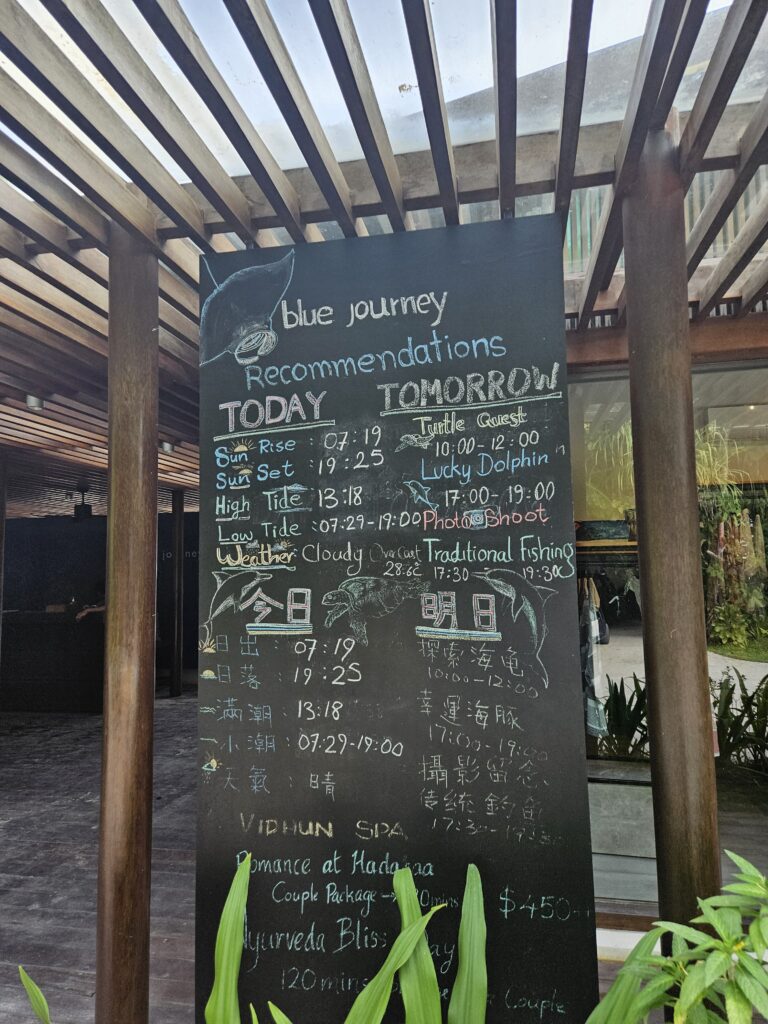 blue journey
Recommendations
TODAY
Sun Rise : 07:19
Sun Set : 19:25
High Tide : 13:18
Low Tide : 07:29-19:00
Weather : Cloudy Overcast
28.6c
TOMORROW
Turtle Quest
10:00-12:00
Lucky Dolphin
17:00-19:00
Photo Shoot
Traditional Fishing
17:30 - 19:30
今日
日出 : 07:19
日落 : 19:25
滿潮 : 13:18
小潮 : 07:29-19:00
天氣 : 晴
明日
探索海龟
10:00-12:00
幸運海豚
17:00-19:00
攝影留念
傳統釣魚
17:30-19:30
VIDHUN SPA
Romance at Hadahaa
Couple Package → mins $450
Ayurveda Bliss
120 mins Couple